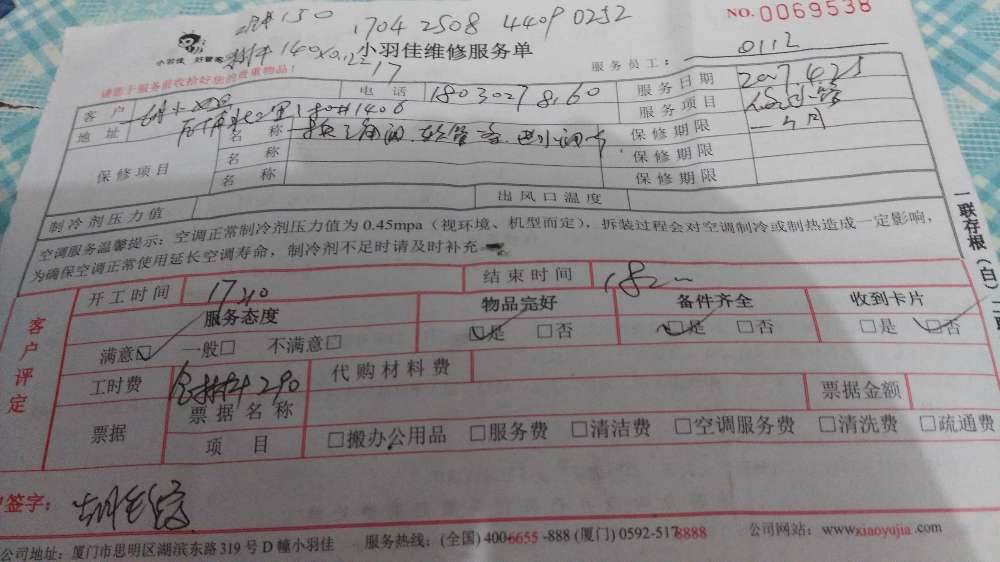 150 1704 2508 4409 0252
NO. 0069538
小羽佳 好管家 140×0.122=17 小羽佳维修服务单
请您于服务前收拾好您的贵重物品！ 服务员工： 0112
客户 电话 18030278160 服务日期
地址 1406 服务项目
保修项目 名称 保修期限 一个月
名称 保修期限
名称 保修期限
制冷剂压力值 出风口温度
空调服务温馨提示：空调正常制冷剂压力值为 0.45mpa（视环境、机型而定），拆装过程会对空调制冷或制热造成一定影响，
为确保空调正常使用延长空调寿命，制冷剂不足时请及时补充
一联存根（白）
客户评定
开工时间 结束时间
服务态度 物品完好 备件齐全 收到卡片
满意□ 一般□ 不满意□ □是 □否 □是 □否 □是 □否
工时费 290 代购材料费
票据 票据名称 票据金额
项目 □搬办公用品 □服务费 □清洁费 □空调服务费 □清洗费 □疏通费
签字：
公司地址：厦门市思明区湖滨东路 319 号 D 幢小羽佳 服务热线：(全国) 4006655-888 (厦门) 0592-5178888 公司网站：www.xiaoyujia.com